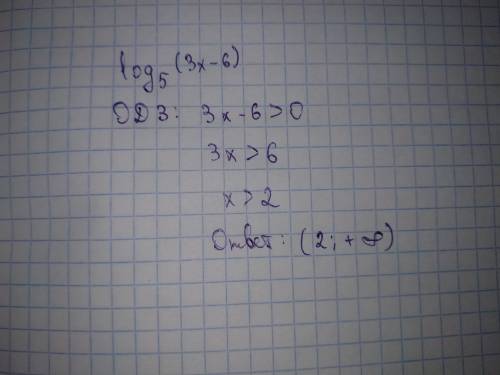 log₅(3x-6)
ОДЗ: 3x-6>0
3x>6
x>2
Ответ: (2;+∞)